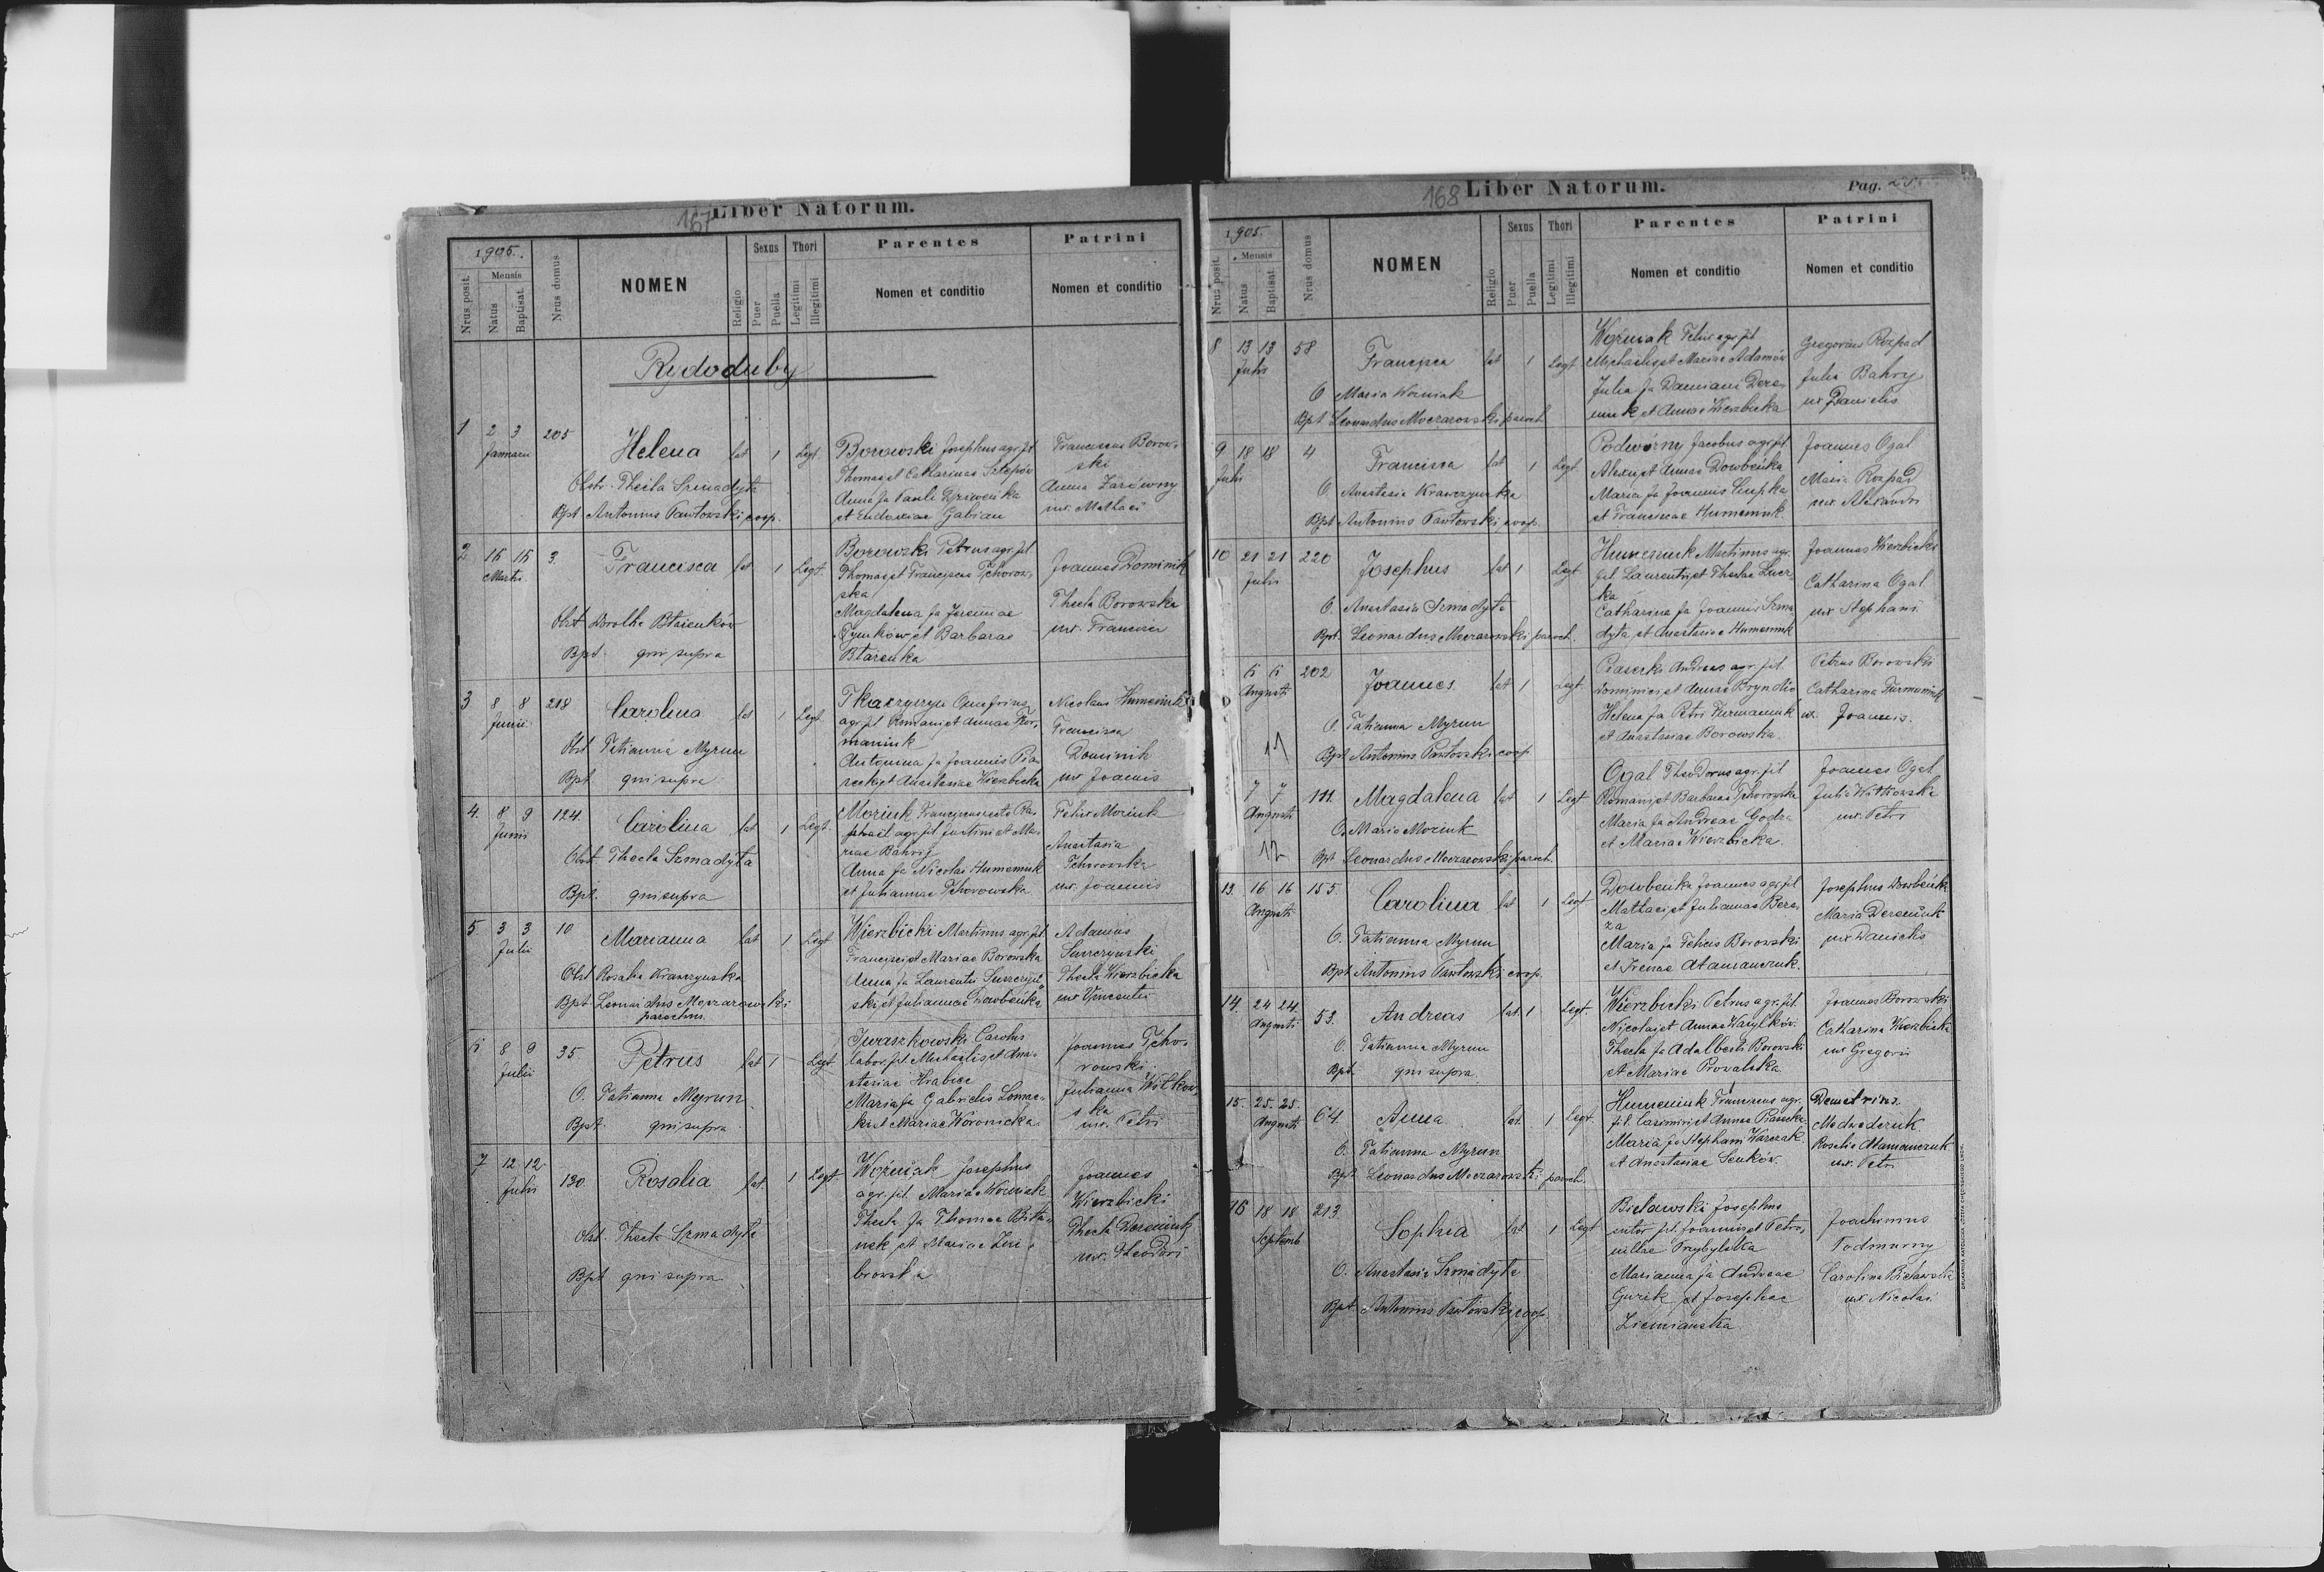 167 Liber Natorum.
1905.
Nrus posit.
Mensis
Natus
Baptisat.
Nrus domus
NOMEN
Religio
Sexus
Puer
Puella
Thori
Legitimi
Illegitimi
Parentes
Nomen et conditio
Patrini
Nomen et conditio
Rydoduby
1 2 3 205 Helena lat 1 Legt.
Januarii
Obstr. Thecla Szmadyta
Bpt Antonius Pawłowski coop.
Borowski Josephus agr. fil
Thomae et Catharinae
Anna fa Pauli
et Eudoxiae Gabian
Franciscus Borow-
ski
Anna
ux. Mathaei
2 15 15 3. Francisca lat 1 Legt.
Martii
Obst Dorothea
Bpt. qui supra
Borowski Petrus agr. fil
Thomae et Franciscae Tchorow-
ska
Magdalena fa Jeremiae
et Barbarae
Joannes Dominik
Thecla Borowska
ux. Francisci
3 8 8 218 Carolina lat 1 Legt
Junii
Obst Tatianna Myrun
Bpt qui supra
Tkaczyszyn Onufrius
agr. fil Romani et Annae Fur-
maniuk
Antonina fa Joannis Pia-
secki et Anastasiae Wierzbicka
Nicolaus Humeniuk
Francisca
Dominik
ux Joannis
4. 8 9 124. Carolina lat 1 Legt.
Junii
Obst. Thecla Szmadyta
Bpt. qui supra
Moziuk Franciscus
agr. fil Justini et Ma-
riae Bahrij
Anna fa Nicolai Humeniuk
et Juliannae Tchorowska
Felix Moziuk
Anastasia
Tchorowska
ux. Joannis
5 3 3 10 Marianna lat 1 Legt
Julii
Obst Rosalia Krawczynska
Bpt Leonardus Moczarowski
parochus
Wierzbicki Martinus agr. fil
Francisci et Mariae Borowska
Anna fa Laurentii
ski et Juliannae Dowbeńka
Adamus
Thecla Wierzbicka
ux Vincentii
6 8 9 35 Petrus lat 1 Legt
Julii
O. Tatianna Myrun
Bpt. qui supra
Iwaszkowski Carolus
labor. fil Michaelis et Ana-
stasiae Hrabicz
Maria fa Gabrielis
et Mariae Woronicka
Joannes Tcho-
rowski
Julianna Witkow-
ska
ux. Petri
7 12 12 130. Rosalia lat. 1 Legt.
Julii
Obst. Thecla Szmadyta
Bpt qui supra
Woźniak Josephus
agr. fil. Mariae Woźniak
Thecla fa Thomae
et Mariae
browska
Joannes
Wierzbicki
Thecla Dereniuk
ux. Theodori
168 Liber Natorum. Pag. 25.
1905.
Nrus posit.
Mensis
Natus
Baptisat.
Nrus domus
NOMEN
Religio
Sexus
Puer
Puella
Thori
Legitimi
Illegitimi
Parentes
Nomen et conditio
Patrini
Nomen et conditio
8 13 13 58 Francisca lat 1 Legt
Julii
O Maria Woźniak
Bpt Leonardus Moczarowski paroch
Woźniak Felix agr. fil
Michaelis et Mariae Adamów
Julia fa Damiani Dere-
niuk et Annae Wierzbicka
Gregorius Rozpad
Julia Bahry
ux Danielis
9 18 18 4 Francisca lat 1 Legt
Julii
O. Anastasia Krawczynska
Bpt Antonius Pawłowski coop.
Podwórny Jacobus agr. fil
Alexii et Annae Dowbeńka
Maria fa Joannis
et Franciscae Humeniuk.
Joannes Ogal
Maria Rozpad
ux. Alexandri
10 21 21 220 Josephus lat 1 Legt
Julii
O. Anastasia Szmadyta
Bpt. Leonardus Moczarowski paroch.
Humeniuk Martinus agr.
fil. Laurentii et Theclae
ka
Catharina fa Joannis Szma-
dyta et Anastasiae Humeniuk
Joannes Wierzbicki
Catharina Ogal
ux Stephani
6 6 202 Joannes lat 1 Legt
Augusti
O. Tatianna Myrun
11 Bpt Antonius Pawłowski coop
Piasecki Andreas agr. fil.
Dominici et Annae
Helena fa Petri Furmaniuk
et Anastasiae Borowska.
Petrus Borowski
Catharina Furmaniuk
ux. Joannis.
7 7 111 Magdalena lat 1 Legt
Augusti
O. Maria Moziuk
12 Bpt Leonardus Moczarowski paroch.
Ogal Theodorus agr. fil
Romani et Barbarae Tchorowska
Maria fa Andreae Godza
et Mariae Wierzbicka.
Joannes Ogal
Julia Witkowska
ux. Petri
13. 16 16 155. Carolina lat 1 Legt
Augusti
O. Tatianna Myrun
Bpt Antonius Pawłowski coop.
Dowbeńka Joannes agr. fil
Mathaei et Juliannae Bere-
za
Maria fa Felicis Borowski
et Irenae Atamanczuk.
Josephus Dowbeńka
Maria Dereniuk
ux Danielis
14. 24 24. 53. Andreas lat. 1 Legt.
Augusti
O. Tatianna Myrun
Bpt. qui supra.
Wierzbicki Petrus agr. fil.
Nicolai et Annae Wasylków.
Thecla fa Adalberti Borowski
et Mariae
Joannes Borowski
Catharina Wierzbicka
ux Gregorii
15. 25. 25. 64. Anna lat. 1 Legt.
Augusti
O. Tatianna Myrun
Bpt. Leonardus Moczarowski paroch.
Humeniuk Franciscus agr.
fil. Casimiri et Annae Piasecka
Maria fa Stephani Warczak
et Anastasiae Senków.
Demetrius
Medwederuk
Rosalia Atamanczuk
ux. Petri
16 18 18 213. Sophia lat 1 Legt
Septemb
O. Anastasia Szmadyta
Bpt Antonius Pawłowski coop.
Bielawski Josephus
sutor fil. Joannis et Petro-
nillae Przybylska
Marianna fa Andreae
Gurik et Josephae
Ziemianska
Joachimus
Podmurny
Carolina Bielawska
ux. Nicolai